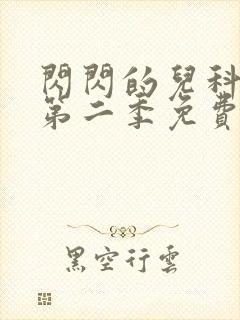 閃閃的兒科
第二季免費
黑空行雲